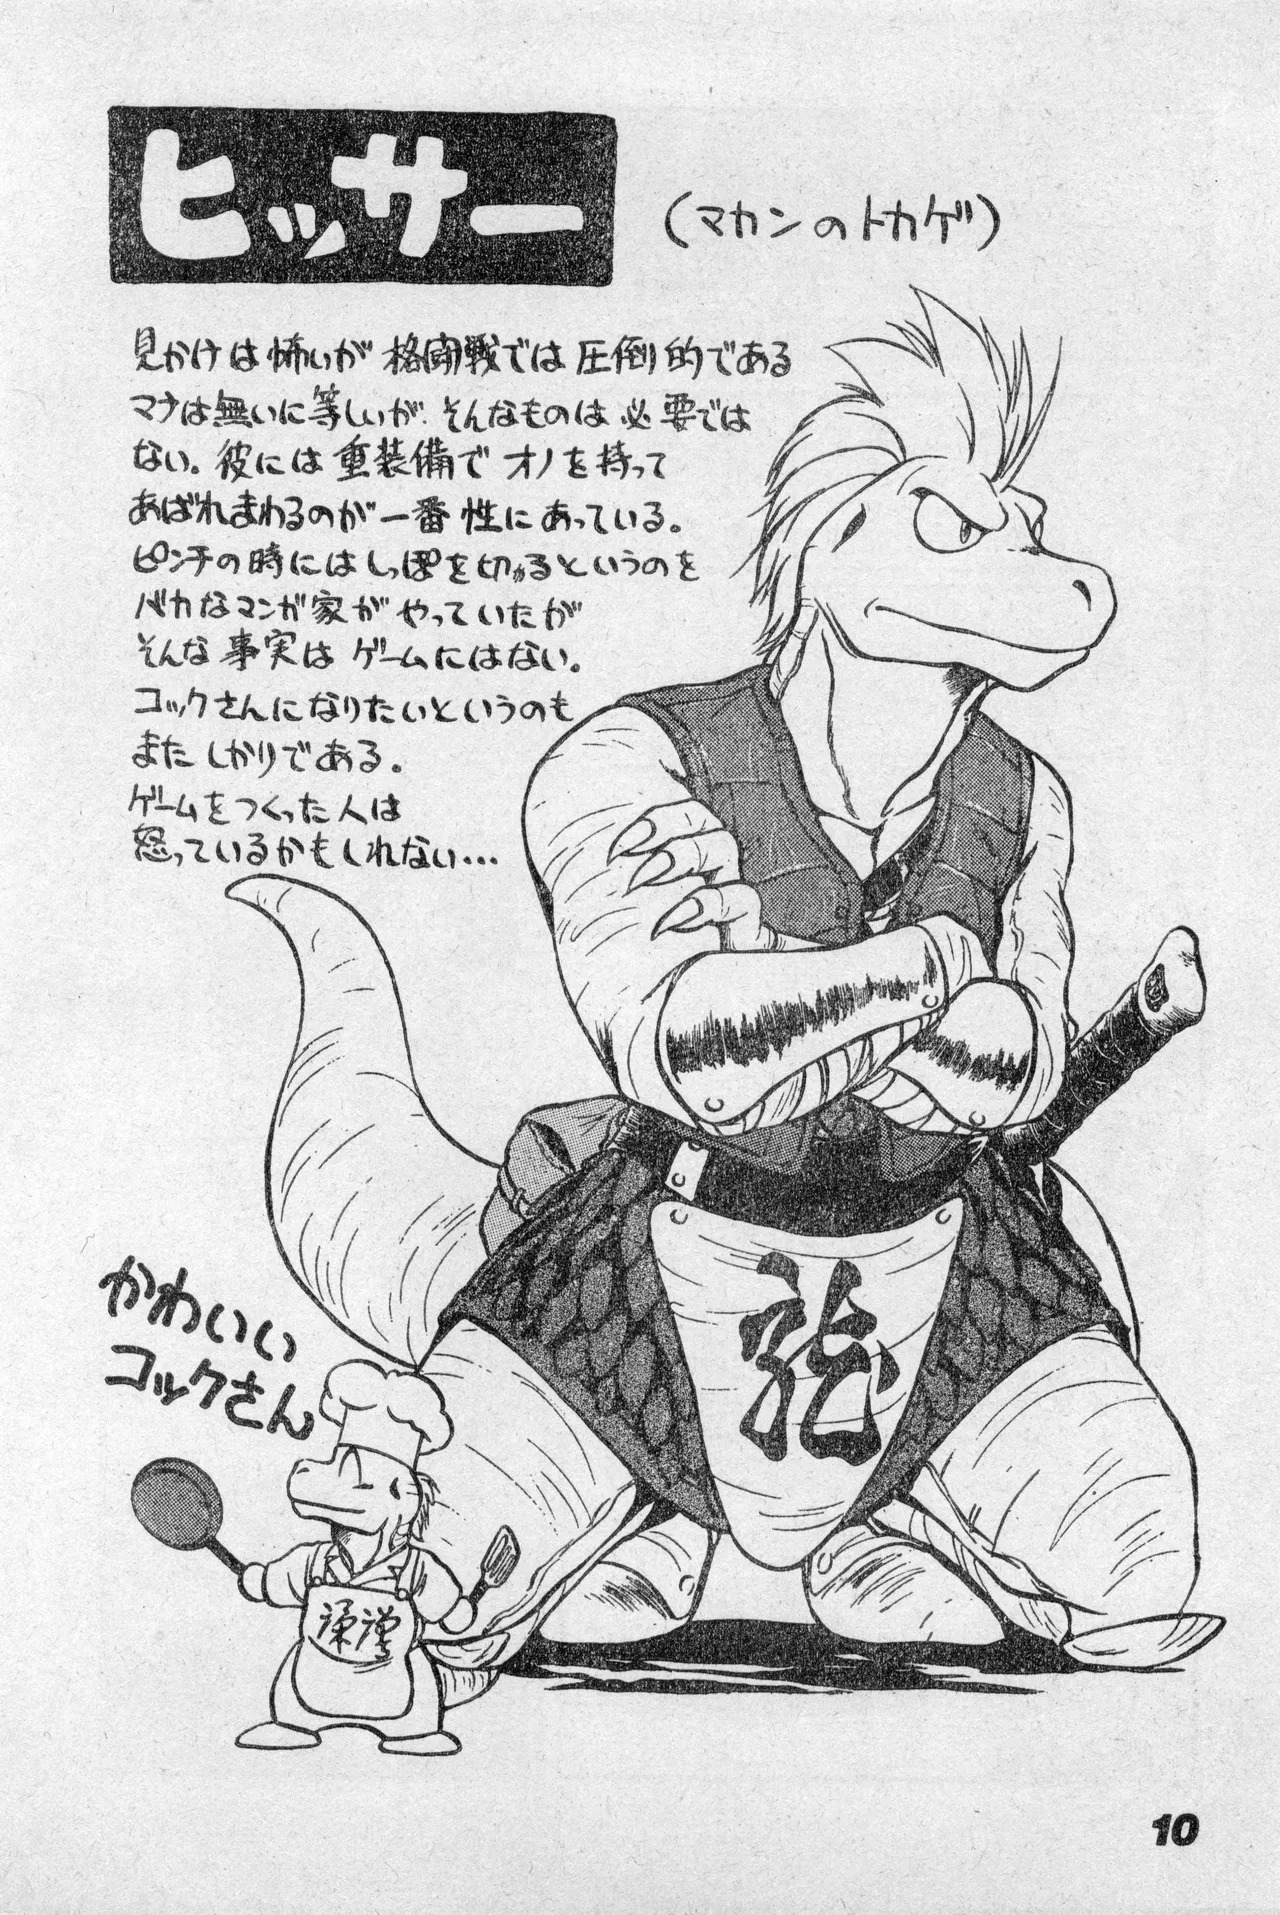 ヒッサー
(マカンのトカゲ)
見かけは怖いが格闘戦では圧倒的である
マナは無いに等しいが、そんなものは必要では
ない。彼には重装備でオノを持って
あばれまわるのが一番性にあっている。
ピンチの時にはしっぽを切るというのを
バカなマンガ家がやっていたが
そんな事実はゲームにはない。
コックさんになりたいというのも
またしかりである。
ゲームをつくった人は
怒っているかもしれない…
かわいい
コックさん
龍
10